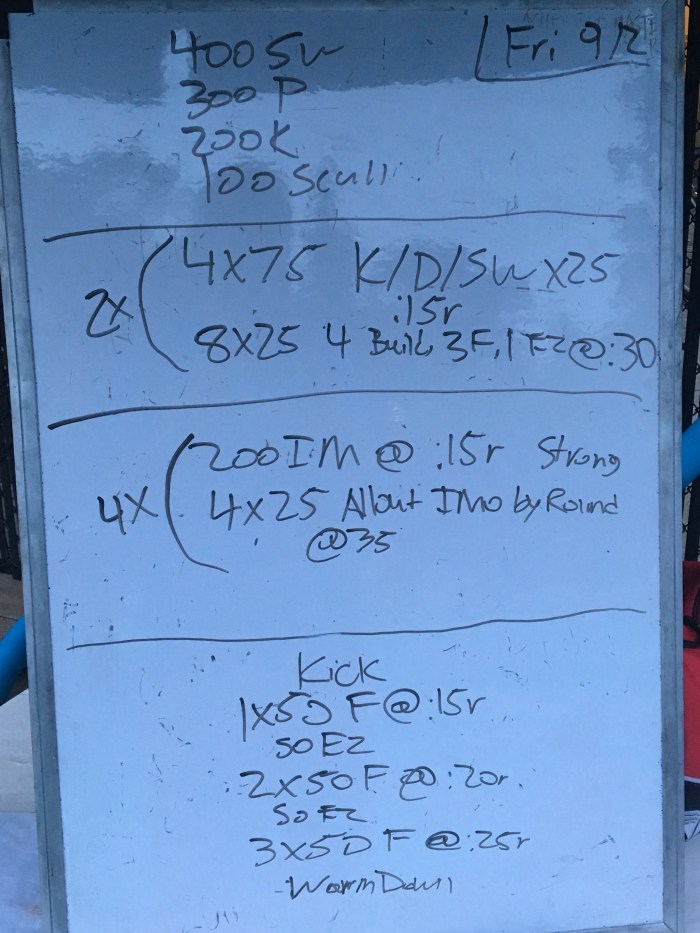 Fri 9/2
400 Sw
300 P
200 K
100 Scull
2x ( 4x75 K/D/Sw x25
:15r
8x25 4 Build, 3F, 1 EZ @ :30
4x ( 200 IM @ :15r Strong
4x25 Allout IMO by Round
@35
Kick
1x50 F @ :15r
50 EZ
2x50 F @ :20r
50 EZ
3x50 F @ :25r
-Warm Down